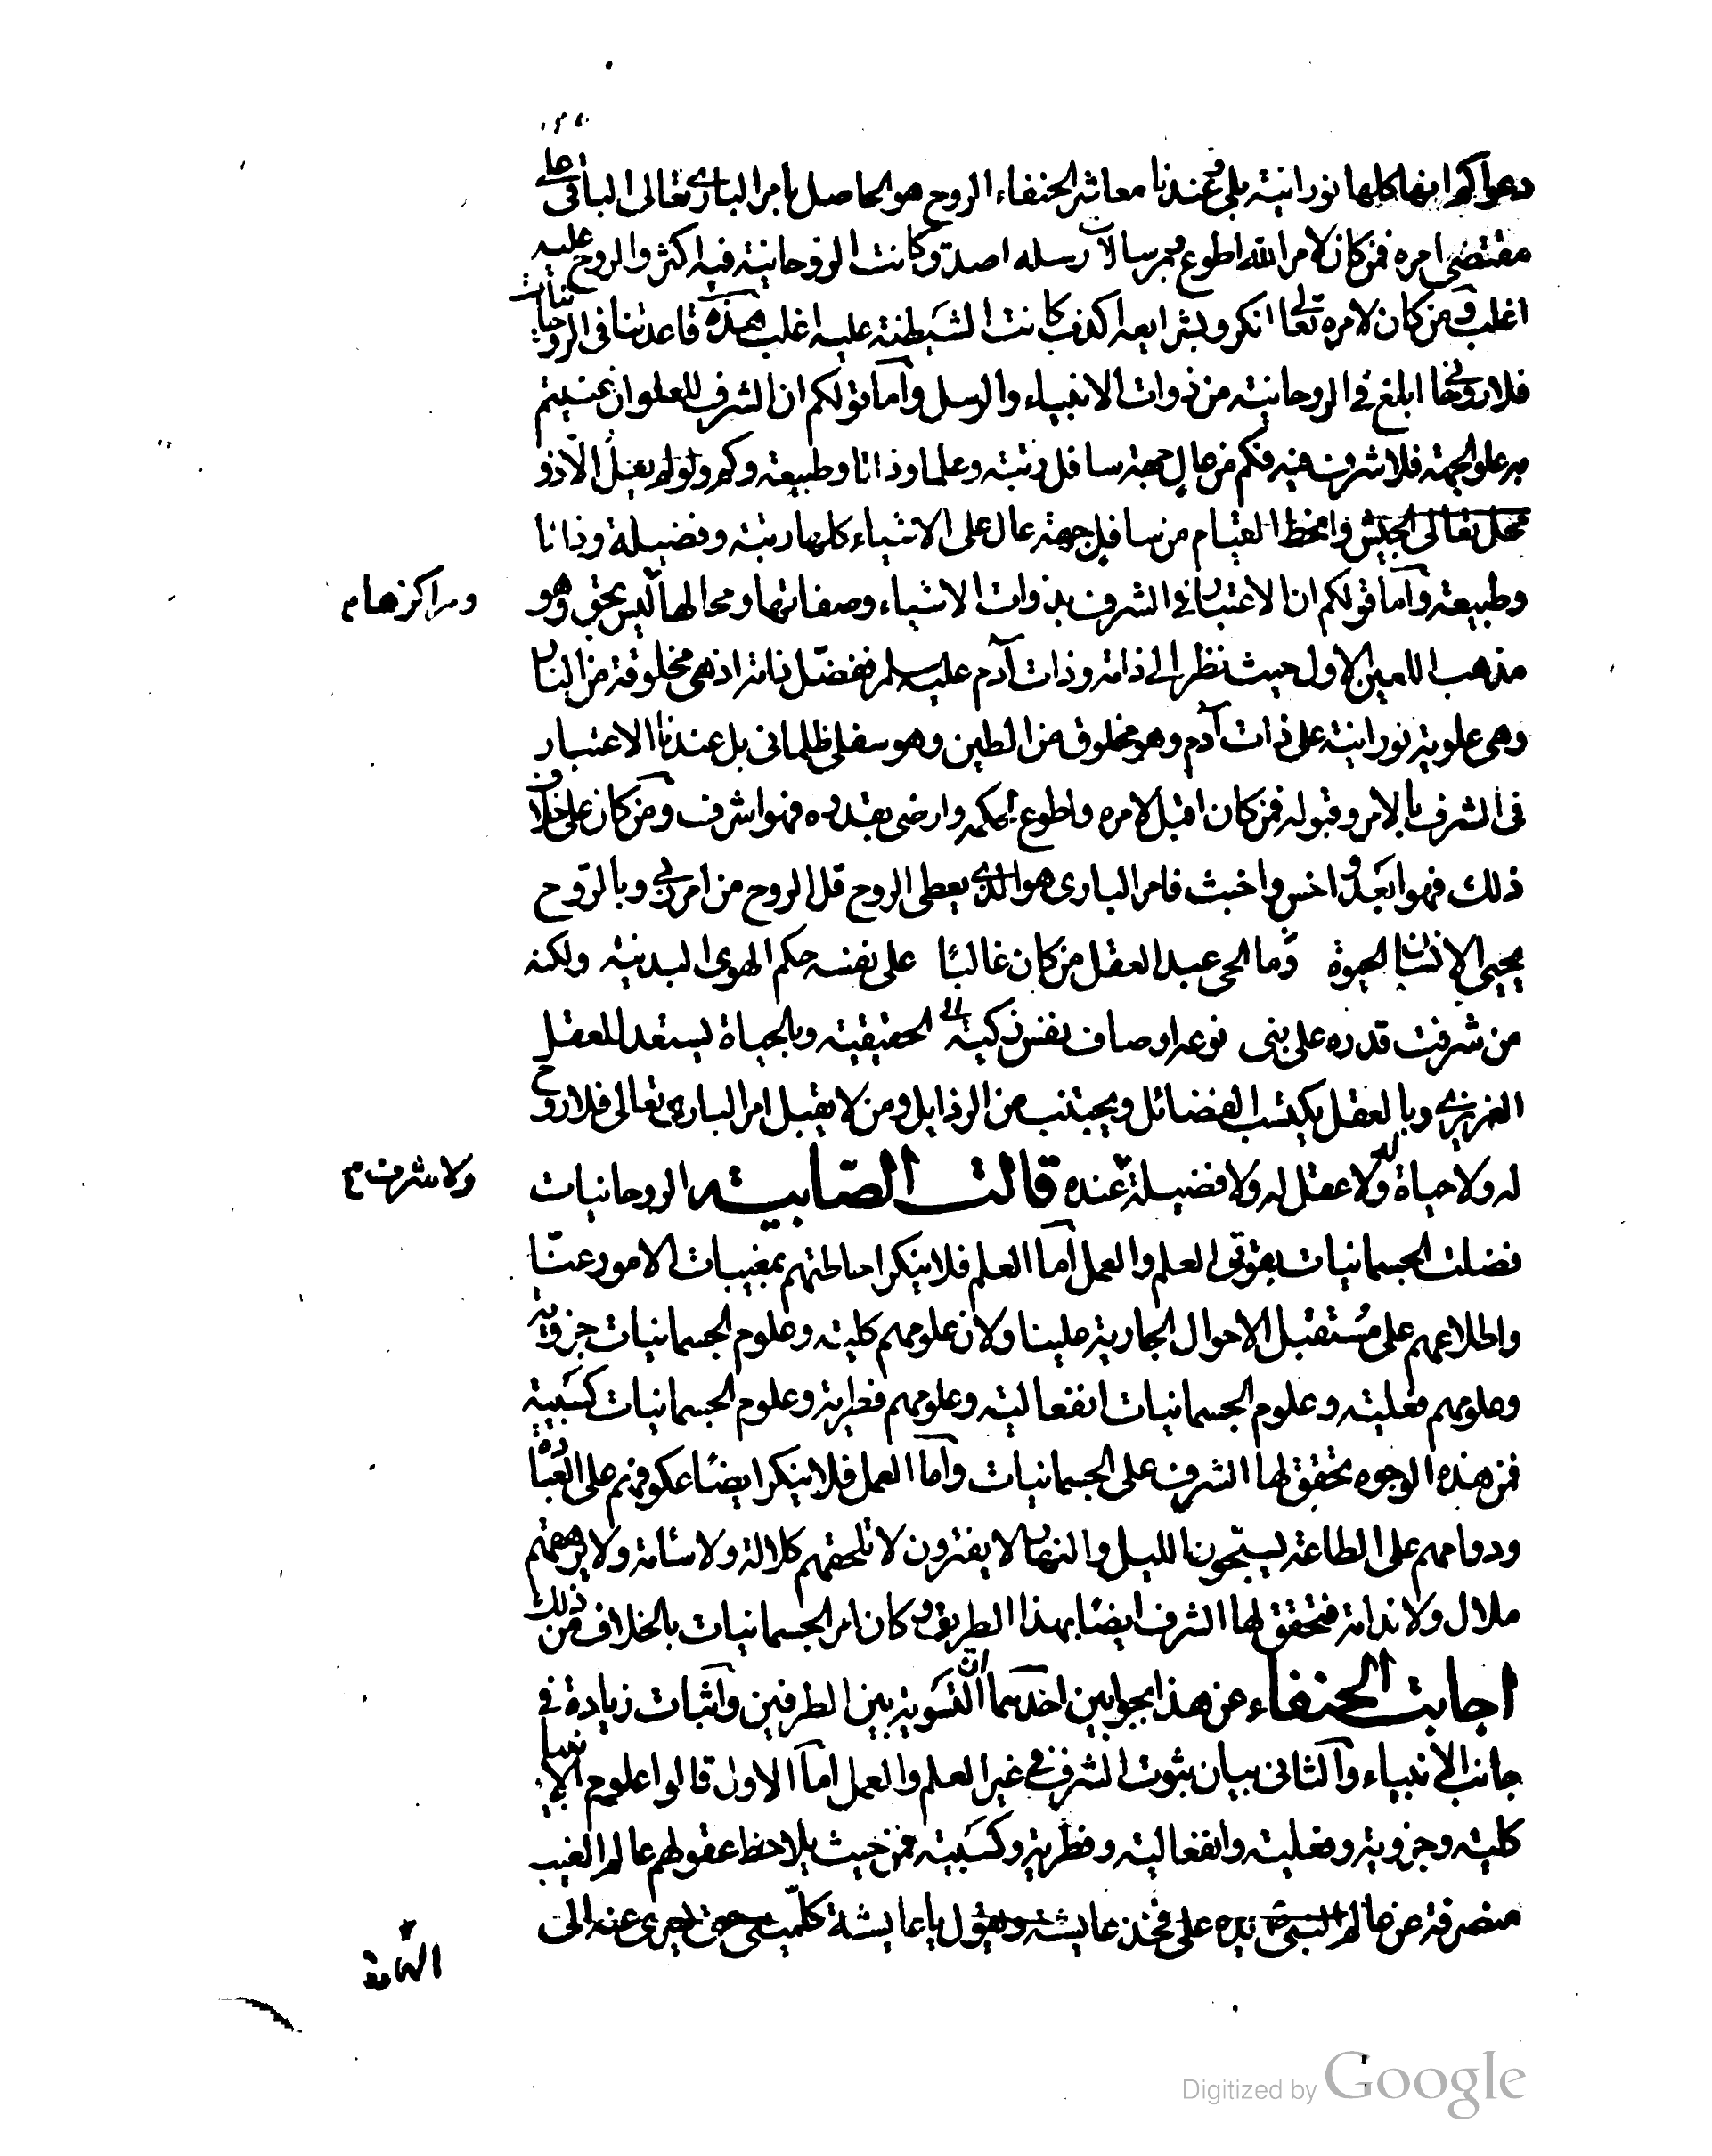 دعواكم انها كلها نورانية بل وعندنا معاشر الحنفاء الروح هو الحاصل بامر الباري تعالى الباقي على
مقتضى امره فمن كان لامر الله اطوع وبرسالات رسله اصدق وكانت الروحانية فيه اكثر والروح عليه
اغلب ومن كان لامره تعالى انكر وبشرايعه اكذب كانت الشيطنة عليه اغلب هذه قاعدتنا في الروحانيات
فلا روحاني ابلغ في الروحانية من ذوات الانبياء والرسل واما قولكم ان الشرف للعلو ان عنيتم
به علو الجهة فلا شرف فيه فكم من عال جهة سافل رتبة وعلما وذاتا وطبيعة وكم
من سافل جهة عال على الاشياء كلها رتبة وفضيلة وذاتا
وطبيعة واما قولكم ان الاعتبار في الشرف بذوات الاشياء وصفاتها ومحالها ليس بحق وهو
ومراكزها م
مذهب اللعين الاول حيث نظر الى ذاته وذات آدم عليه السلم ففضل ذاته اذ هي مخلوقة من النار
وهي علوية نورانية على ذات آدم وهو مخلوق من الطين وهو سفلي ظلماني بل عندنا الاعتبار
في الشرف بالامر وقبوله فمن كان اقبل لامره واطوع لحكمه وارضى بقدره فهو اشرف ومن كان على خلاف
ذلك فهو ابعد واخس واخبث فامر الباري هو الذي يعطي الروح قل الروح من امر ربي وبالروح
يحيى الانسان الحيوة وما الحى عبد العقل من كان غالبا على نفسه حكم الهوى البدنية ولكنه
من شرفت قدره على بني نوعه اوصاف نفس زكية الحقيقية وبالحياة يستعد للعقل
الغريزي وبالعقل يكتسب الفضائل ويجتنب عن الرذايل ومن لا يقبل امر الباري تعالى فلا روح
له ولا حياة له ولا عقل له ولا فضيلة عنده قالت الصابية الروحانيات
ولا شرف م
فضلت الجسمانيات بقوتي العلم والعمل اما العلم فلا ينكر احاطتهم بمغيبات الامور عنا
واطلاعهم على مستقبل الاحوال الجارية علينا ولان علومهم كلية وعلوم الجسمانيات جزوية
وعلومهم فعلية وعلوم الجسمانيات انفعالية وعلومهم فطرية وعلوم الجسمانيات كسبية
فمن هذه الوجوه تحقق لها الشرف على الجسمانيات واما العمل فلا ينكر ايضا عكوفهم على العبادة
ودوامهم على الطاعة يسبحون الليل والنهار لا يفترون لا تلحقهم كلالة ولا سئامة ولا يرهقهم
ملال ولا ندامة فتحقق لها الشرف ايضا بهذا الطريق وكان امر الجسمانيات بالخلاف من ذلك
اجابت الحنفاء عن هذا بجوابين احدهما التسوية بين الطرفين واثبات زيادة في
جانب الانبياء والثاني بيان ثبوت الشرف في غير العلم والعمل اما الاول قالوا علوم الانبياء
كلية وجزوية وفعلية وانفعالية وفطرية وكسبية فمن حيث يلاحظ عقولهم عالم الغيب
منصرفة عن عالم يده على فخذ عايشة ويقول يا عايشة كلميني حتى يسرى عنه الى